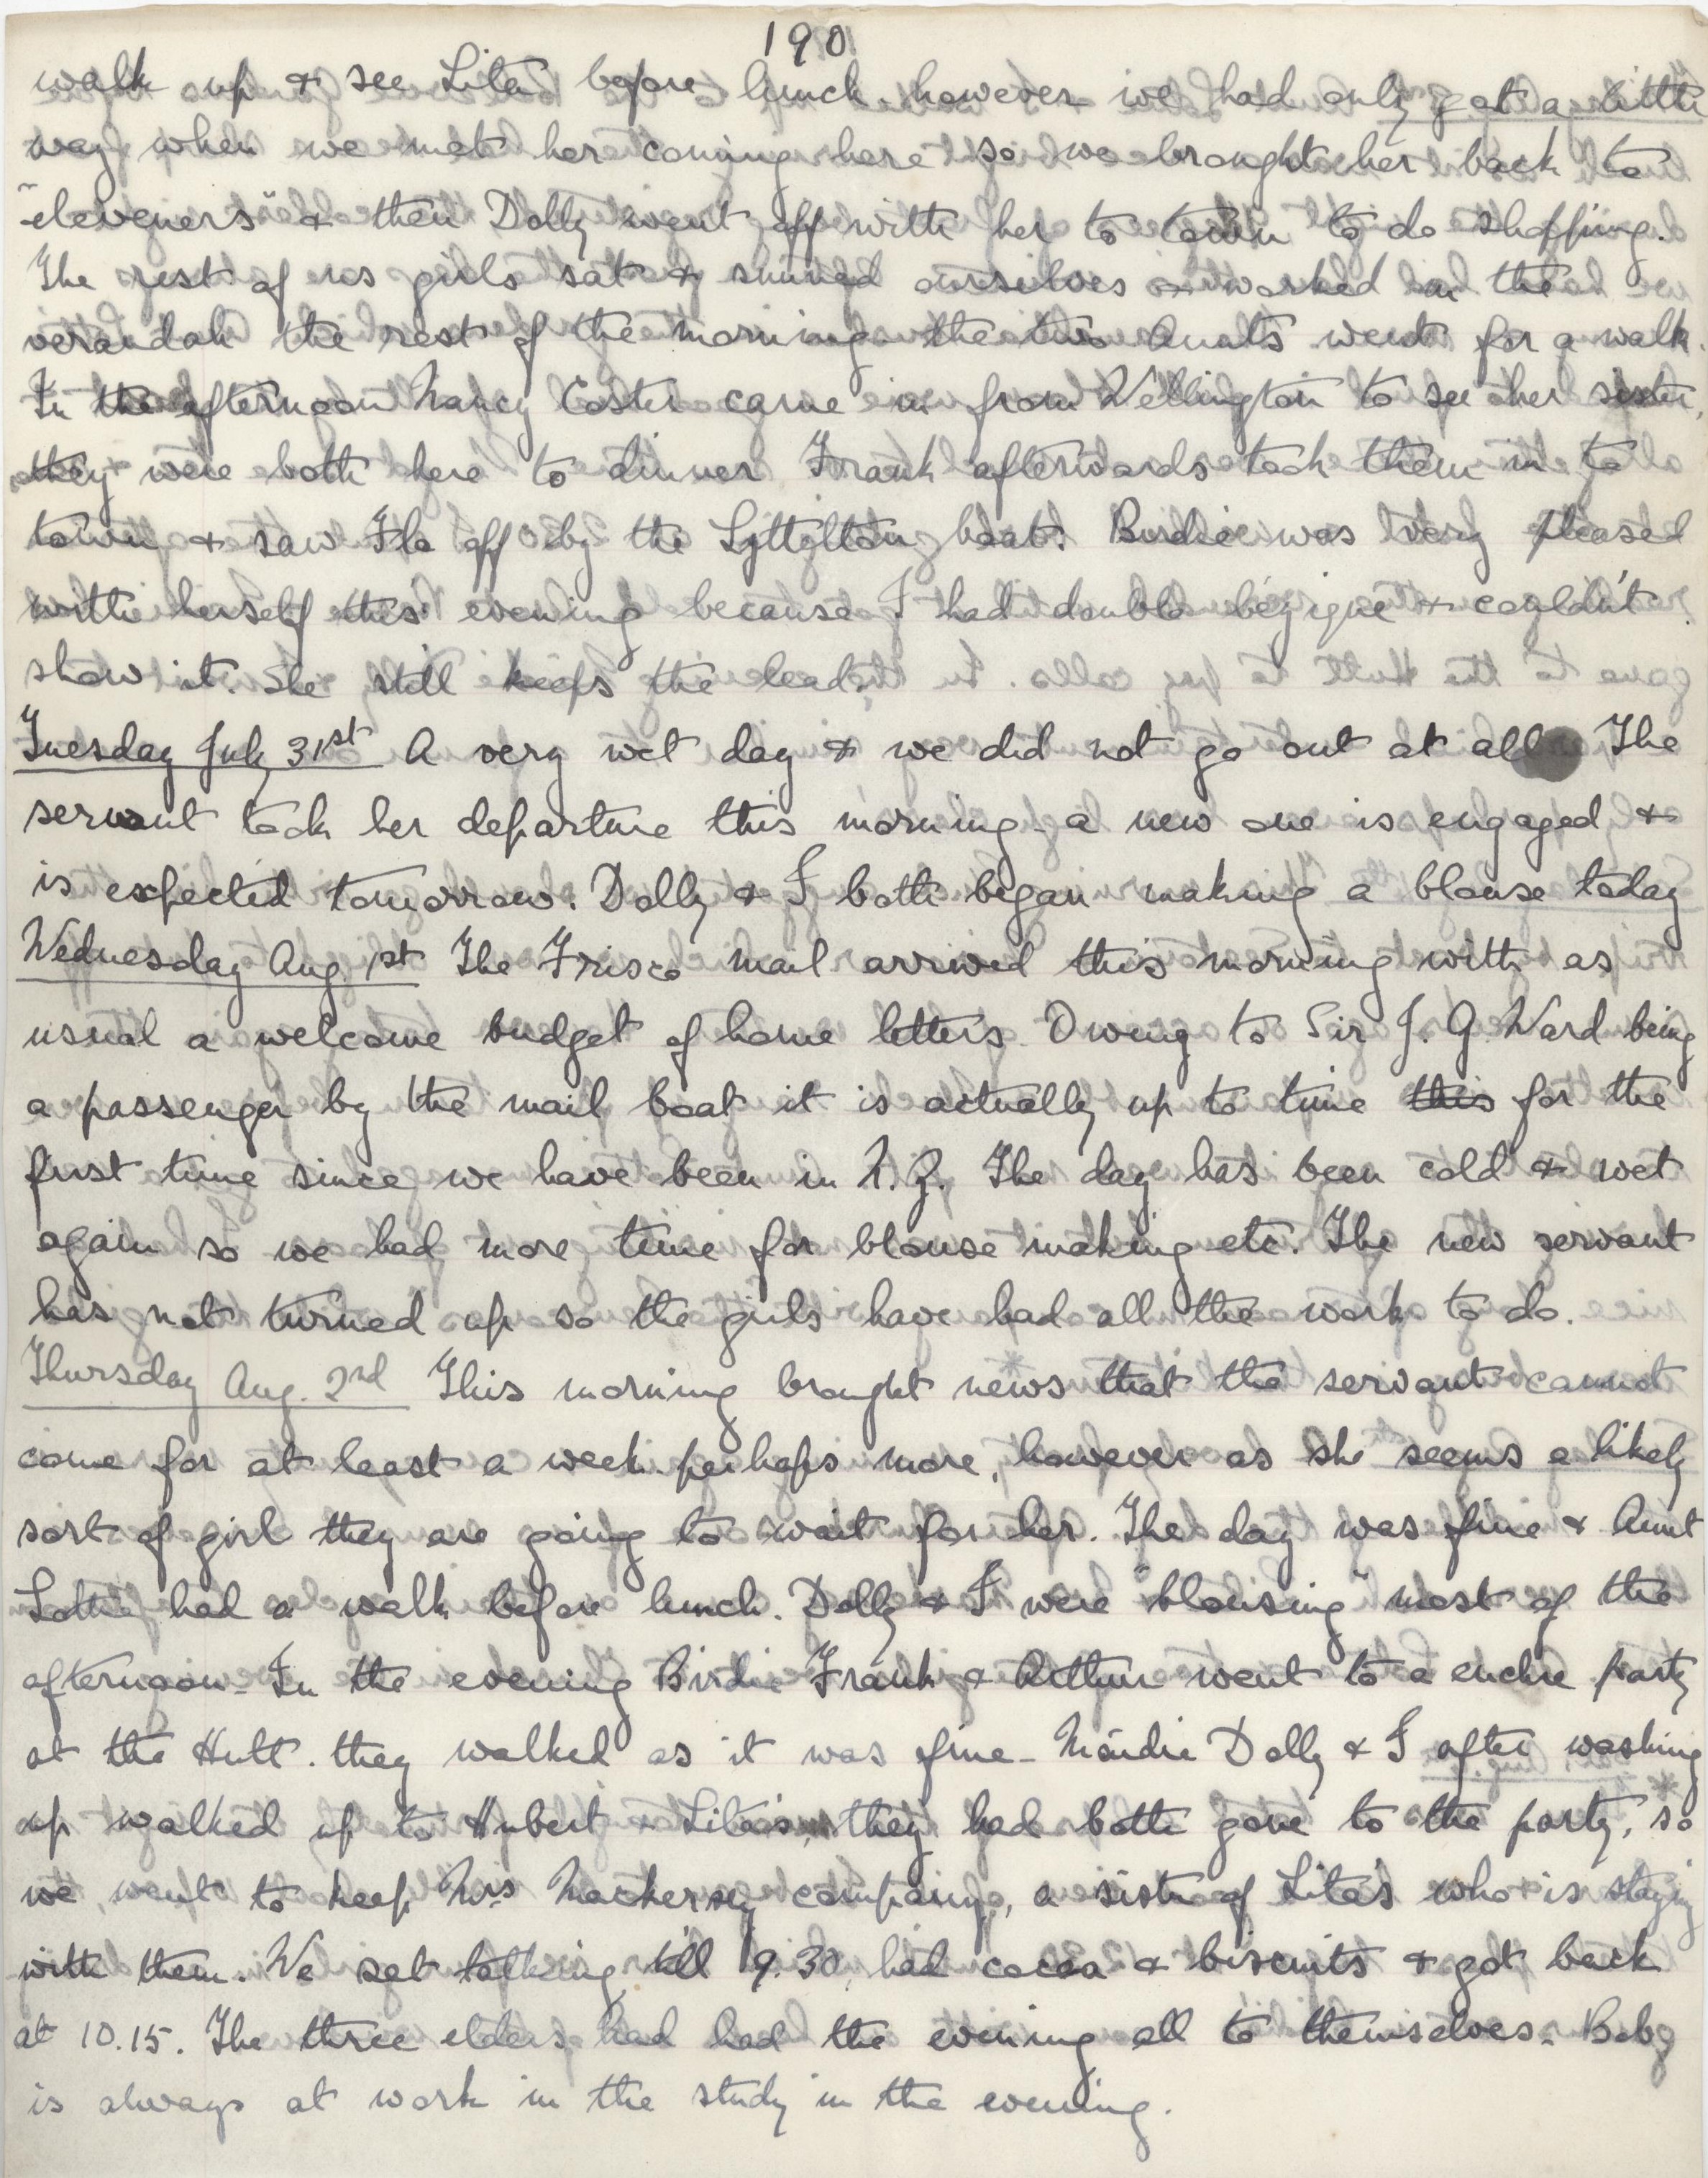 190
walk up & see Lita before lunch. however we had only got a little
way when we met her coming here so we brought her back to
"eleveners" & then Dolly went off with her to town to do shopping.
The rest of us girls sat & sunned ourselves & worked in the
verandah the rest of the morning the two Aunts went for a walk.
In the afternoon Nancy Coster came in from Wellington to see her sister,
they were both here to dinner Frank afterwards took them in to
town & saw Flo off by the Lyttelton boat. Birdie was very pleased
with herself this evening because I had double bézique & couldn't
show it. She still keeps the lead.
Tuesday July 31st A very wet day & we did not go out at all The
servant took her departure this morning - a new one is engaged &
is expected tomorrow. Dolly & I both began making a blouse today
Wednesday Aug. 1st The Frisco mail arrived this morning with as
usual a welcome budget of home letters. Owing to Sir J. G. Ward being
a passenger by the mail boat it is actually up to time this for the
first time since we have been in N.Z. The day has been cold & wet
again so we had more time for blouse making etc. The new servant
has not turned up so the girls have had all the work to do.
Thursday Aug. 2nd This morning brought news that the servant cannot
come for at least a week perhaps more, however as she seems a likely
sort of girl they are going to wait for her. The day was fine & Aunt
Lottie had a walk before lunch. Dolly & I were "blousing" most of the
afternoon - In the evening Birdie Frank & Arthur went to a euchre party
at the Hutt. they walked as it was fine - Maidie Dolly & I after washing
up walked up to Hubert & Lita's, they had both gone to the party, so
we went to keep Mrs Mackersey company, a sister of Lita's who is staying
with them. We sat talking till 9.30, had cocoa & biscuits & got back
at 10.15. The three elders had had the evening all to themselves - Bob
is always at work in the study in the evening.